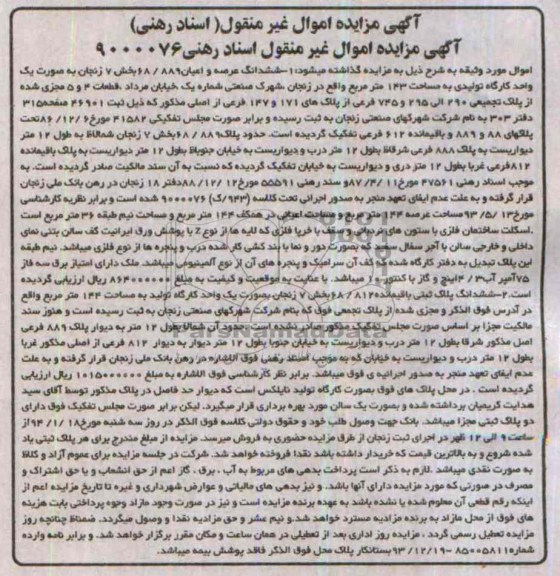 آگهی مزایده اموال غیر منقول( اسناد رهنی)
آگهی مزایده اموال غیر منقول اسناد رهنی۹۰۰۰۰۷۶
اموال مورد وثیقه به شرح ذیل به مزایده گذاشته میشود:۱-ششدانگ عرصه و اعیان۸۸۹/ ۶۸بخش ۷ زنجان به صورت یک
واحد کارگاه تولیدی به مساحت ۱۴۳ متر مربع واقع در زنجان ،شهرک صنعتی شماره یک ،خیابان مرداد ،قطعات ۴ و ۵ مجزی شده
از پلاک تجمیعی ۲۹۰ الی ۲۹۵ و ۷۴۵ فرعی از پلاک های ۱۷۱ و ۱۴۷ فرعی از اصلی مذکور که ذیل ثبت ۴۶۹۰۱ صفحه۳۱۵
دفتر ۳۰۳ به نام شرکت شهرکهای صنعتی زنجان به ثبت رسیده و برابر صورت مجلس تفکیکی ۴۱۵۸۲ مورخ۶ /۱۲/ ۸۶تحت
پلاکهای ۸۸ و ۸۸۹ و باقیمانده ۶۱۲ فرعی تفکیک گردیده است. حدود پلاک۸۸۹/ ۶۸بخش ۷ زنجان شمالاط به طول ۱۲ متر
دیواریست به پلاک ۸۸۸ فرعی شرقاط بطول ۱۲ متر درب و دیواریست به خیابان جنوباط بطول ۱۲ متر دیواریست به پلاک باقیمانده
۸۱۲فرعی غربا بطول ۱۲ متر دری و دیواریست به خیابان تفکیک گردیده که نسبت به آن سند مالکیت صادر گردیده است. به
موجب اسناد رهنی ۴۷۵۶۱ مورخ۱۱ /۴ /۸۷و سند رهنی ۵۵۵۹۱ مورخ۱۲ /۱۲/ ۸۸دفتر ۱۸ زنجان در رهن بانک ملی زنجان
قرار گرفته و به علت عدم ایفای تعهد منجر به صدور اجرائی تحت کلاسه (۹۴۳/ک) ۹۰۰۰۰۷۶ شده است و برابر نظریه کارشناسی
مورخ۱۳ /۵ /۹۳مساحت عرصه ۱۴۴ متر مربع و مساحت اعیانی در همکف ۱۴۴ متر مربع و مساحت نیم طبقه ۳۶ متر مربع است
.اسکلت ساختمان فلزی با ستون های نردبانی و سقف با خرپا فلزی که لایه ها از نوع z با پوشش ورق ایرانیت کف سالن بتنی نمای
داخلی و خارجی سالن با آجر سفال سعید که بصورت دور و نما با بند کشی کار شده درب و پنجره ها از نوع فلزی میباشد. نیم طبقه
این پلاک تبدیل به دفتر کار شده که کف آن سرامیک و پنجره های آن از نوع آلمینیومی میباشد. ملک دارای امتیاز برق سه فاز
۷۵آمپر آب۳/ ۴اینچ و گاز با کنتور میباشد. با عنایت به موقعیت و کیفیت به مبلغ ۸۶۴۰۰۰۰۰۰ ریال ارزیابی گردیده
است.۲-ششدانگ پلاک ثبتی باقیمانده۸۱۲/ ۶۸بخش ۷ زنجان بصورت یک واحد کارگاه تولید به مساحت ۱۴۴ متر مربع واقع
در آدرس فوق الذکر و مجزی شده از پلاک تجمعی فوق که بنام شرکت شهرکهای صنعتی زنجان به ثبت رسیده است و هنوز سند
مالکیت مجزا بر اساس صورت مجلس تفکیک مذکور صادر نشده است . حدود آن شمالا بطول ۱۲ متر به دیوار پلاک ۸۸۹ فرعی
اصل مذکور شرقا بطول ۱۲ متر درب و دیواریست به خیابان جنوبا بطول ۱۲ متر دیوار به دیوار ۸۱۲ فرعی از اصلی مذکور غربا
بطول ۱۲ متر درب و دیواریست به خیابان که به موجب اسناد رهنی فوق الاشاره در رهن بانک ملی زنجان قرار گرفته و به علت
عدم ایفای تعهد منجر به صدور اجرائیه ی فوق میباشد. برابر نظر کارشناسی فوق الاشاره به مبلغ ۱۰۱۵۰۰۰۰۰۰ ریال ارزیابی
گردیده است . در محل پلاک های فوق بصورت کارگاه تولید نایلکس است که دیوار حد فاصل در پلاک مذکور توسط آقای سید
هدایت کریمیان برداشته شده و بصورت یک سالن مورد بهره برداری قرار میگیرد. لیکن برابر صورت مجلس تفکیک فوق دارای
دو پلاک ثبتی مجزا میباشد. بانک جهت وصول طلب خود و حقوق دولتی کلاسه فوق الذکر در روز سه شنبه مورخ۱۸ /۱/ ۹۴از
ساعت۹ الی ۱۲ ظهر در اجرای ثبت زنجان از طرق مزایده حضوری به فروش میرسد. مزایده از مبلغ مندرج برای هر پلاک ثبتی یاد
شده شروع و به بالاترین قیمت که خریدار داشته باشد نقدا فروخته خواهد شد. شرکت در جلسه مزایده برای عموم آزاد و کلاط
به صورت نقدی میباشد .لازم به ذکر است پرداخت بدهی های مربوط به آب ، برق ، گاز اعم از حق انشعاب و یا حق اشتراک و
مصرف در صورتی که مورد مزایده دارای آنها باشد. و نیز بدهی های مالیاتی و عوارض شهرداری و غیره تا تاریخ مزایده اعم از
اینکه رقم قطعی آن معلوم شده یا نشده باشد به عهده برنده مزایده است و نیز در صورت وجود مازاد وجوه پرداختی بابت هزینه
های فوق از محل مازاد به برنده مزایده مسترد خواهد شد.و نیم عشر و حق مزایده نقدا و وصول میگردد. ضمناط چنانچه روز
مزایده تعطیل رسمی گردد ، مزایده روز اداری بعد از تعطیلی در همان ساعت و مکان مقرر برگزار خواهد شد. و برابر نامه وارده
شماره۸۵۰۰۵۸۱۱ -۱۹/ ۱۲/ ۹۳بستانکار پلاک محل فوق الذکر فاقد پوشش بیمه میباشد.